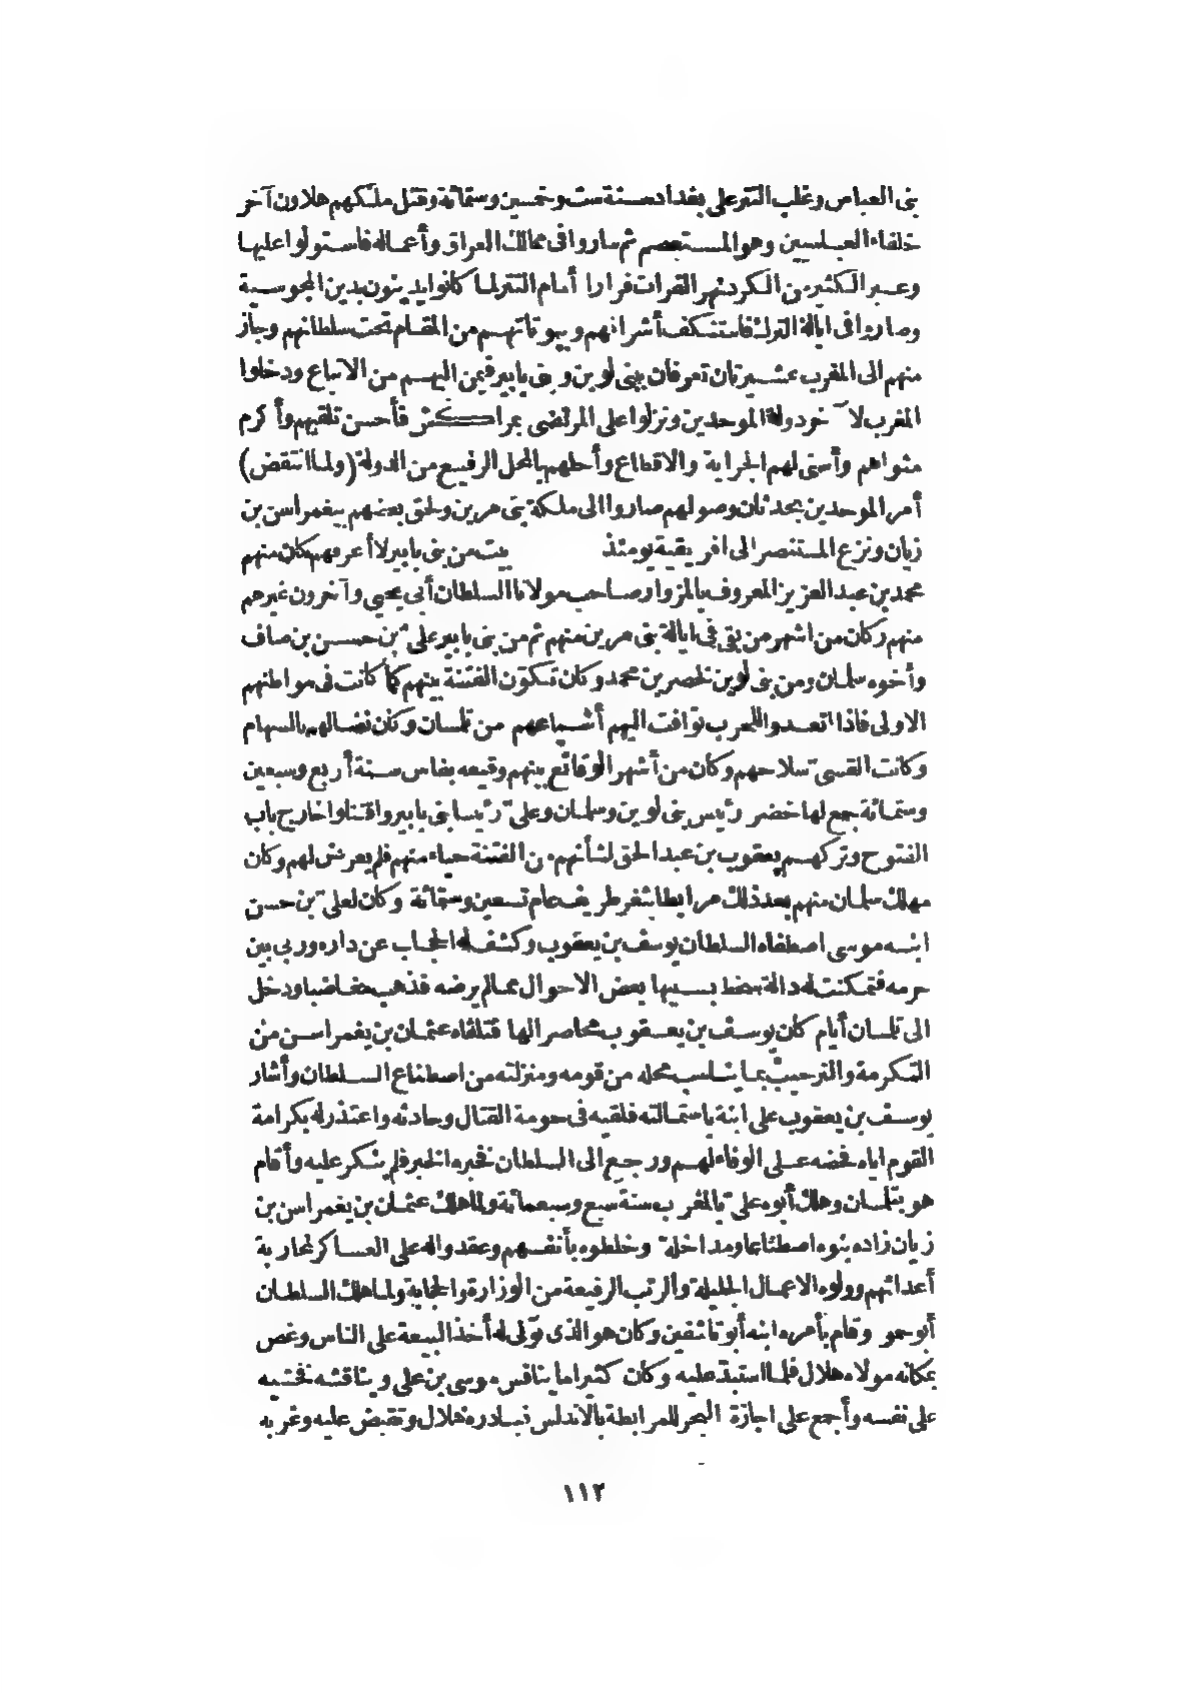 بنى العباس وغلب التتر على بغداد سنة ست وخمسين وستمائة وقتل ملكهم هلاون آخر
خلفاء العباسيين وهو المستعصم ثم ساروا فى ممالك العراق وأعماله فاستولوا عليها
وعبر الكثير من الكرد نهر الفرات فرارا أمام التتر لما كانوا يدينون بدين المجوسية
وصاروا فى ايالة الترك فاستنكف أشرافهم وبيوتاتهم من المقام تحت سلطانهم وجاز
منهم الى المغرب عشيرتان تعرفان ببنى لوين وبنى بابير فيمن اليهم من الاتباع ودخلوا
المغرب لآخر دولة الموحدين ونزلوا على المرتضى بمراكش فأحسن تلقيهم وأكرم
مثواهم وأسنى لهم الجراية والاقطاع وأحلهم بالمحل الرفيع من الدولة (ولما انتقض)
أمر الموحدين بحدثان وصولهم صاروا الى ملكة بنى مرين ولحق بعضهم بيغمراسن بن
زيان ونزع المستنصر الى افريقية يومئذ بيت من بنى بابير لا أعرفهم كان منهم
محمد بن عبد العزيز المعروف بالمزوار صاحب مولانا السلطان أبى يحيى وآخرون غيرهم
منهم وكان من اشهر من بقى فى ايالة بنى مرين منهم ثم من بنى بابير علىّ بن حسن بن صاف
وأخوه سلمان ومن بنى لوين نلخضر بن محمد وكان تكوّن الفتنة بينهم كما كانت فى مواطنهم
الاولى فاذا اتعدوا للحرب توافت اليهم أشياعهم من تلمسان وكان نضالهم بالسهام
وكانت القسىّ سلاحهم وكان من أشهر الوقائع بينهم وقيعه بفاس سنة أربع وسبعين
وستمائة جمع لها خضر رئيس بنى لوين وسلمان وعلىّ رئيسا بنى بابير واقتتلوا خارج باب
الفتوح وتركهم يعقوب بن عبد الحق لشأنهم من الفتنة حياء منهم فلم يعرض لهم وكان
مهلك سلمان منهم بعد ذلك مرابطا بثغر طريف عام تسعين وستمائة وكان لعلىّ بن حسن
ابنه موسى اصطفاه السلطان يوسف بن يعقوب وكشف له الحجاب عن داره وربى بين
حرمه فتمكنت له دالة سخط بسببها بعض الاحوال مما لم يرضه فذهب مغاضبا ودخل
الى تلمسان أيام كان يوسف بن يعقوب محاصرا لها فتلقاه عثمان بن يغمراسن من
التكرمة والترحيب بما يناسب محله من قومه ومنزلته من اصطناع السلطان وأشار
يوسف بن يعقوب على ابنه باستمالته فلقيه فى حومة القتال وحادثه واعتذر له بكرامة
القوم اياه فحضه على الوفاء لهم ورجع الى السلطان فخبره الخبر فلم ينكر عليه وأقام
هو بتلمسان وهلك أبوه علىّ بالمغرب سنة سبع وسبعمائة ولما هلك عثمان بن يغمراسن بن
زيان زاده بنوه اصطناعا ومداخلة وخلطوه بأنفسهم وعقدوا له على العساكر لمحاربة
أعدائهم وولوه الاعمال الجليلة والرتب الرفيعة من الوزارة والحجابة ولما هلك السلطان
أبو حمو وقام بأمره ابنه أبو تاشفين وكان هو الذى تولى له أخذ البيعة على الناس وغص
بمكانه مولاه هلال فلما استبدّ عليه وكان كثيرا ما ينافس موسى بن على ويناقشه فخشيه
على نفسه وأجمع على اجازة البحر للمرابطة بالاندلس فبادره هلال وتقبض عليه وغربه
١١٢